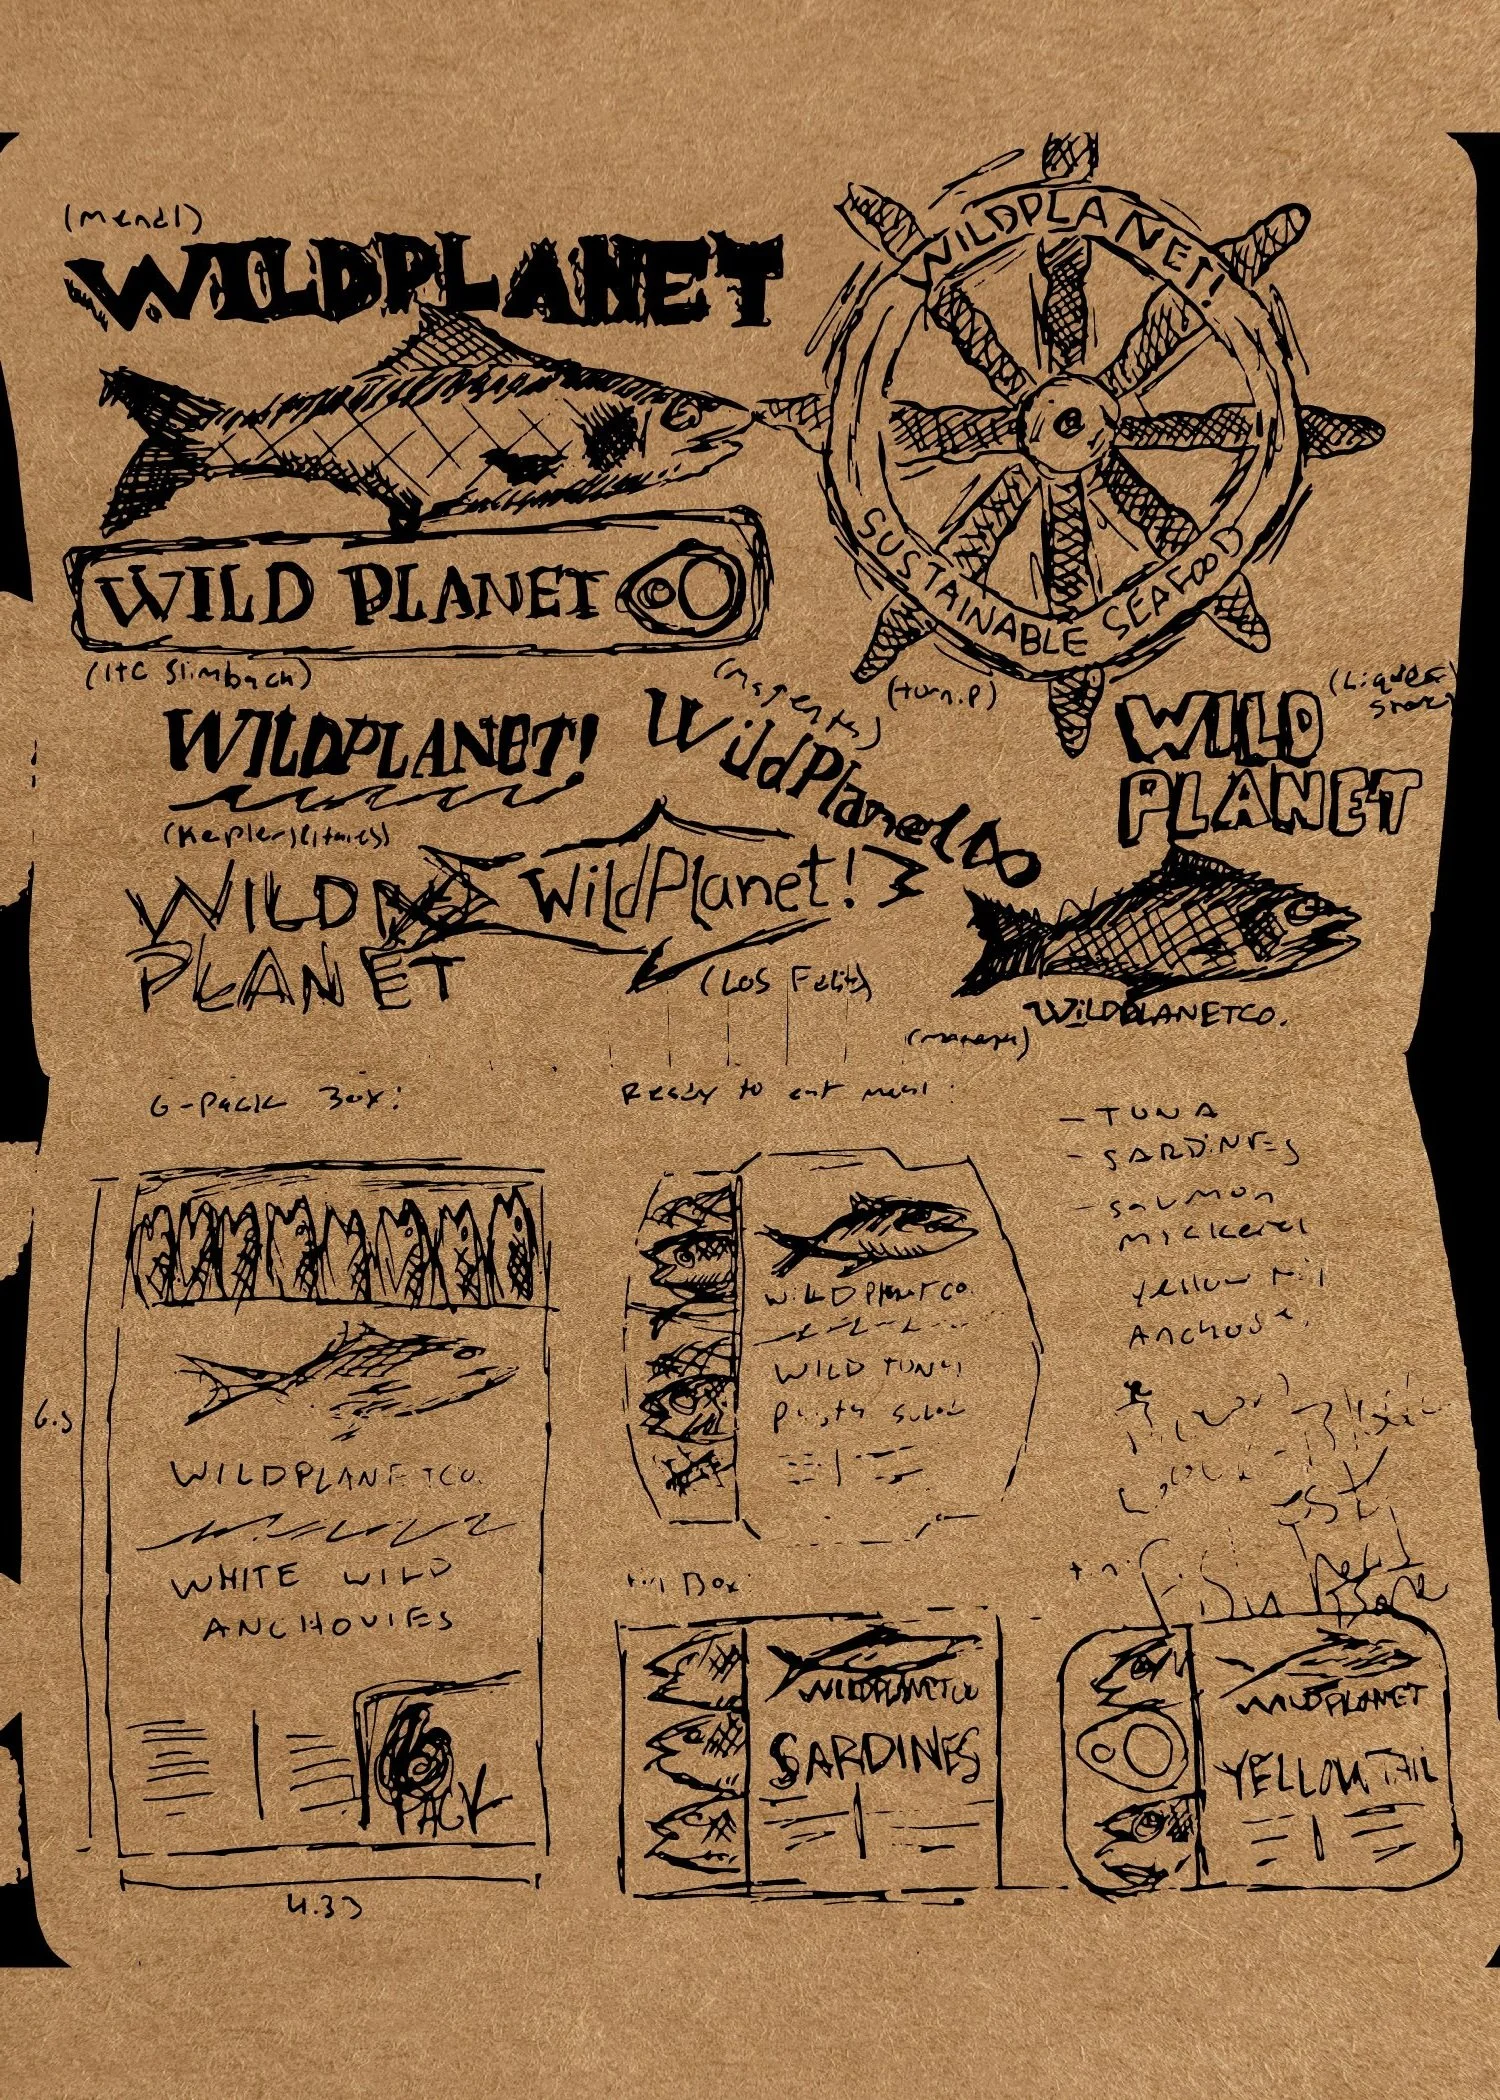 (Mendl)
WILDPLANET
WILDPLANET!
SUSTAINABLE SEAFOOD
WILD PLANET
(ITC Slimbach)
(Magenta)
(turn.P)
(Liquor
Store)
WILDPLANET!
WildPlanet
WILD
PLANET
(Kepler)
WILD
PLANET
WildPlanet!
(Los Feliz)
WILDPLANETCO.
6-Pack Box:
Ready to eat meal:
- TUNA
- SARDINES
- Saumon
Mickerel
yellow tail
Anchos
WILDPLANETCO.
WILD TUNA
Pasta salad
6.5
WILDPLANETCO.
WHITE WILD
ANCHOVIES
6
PACK
4.33
tin Box:
tin
WILDPLANETCO
SARDINES
WILDPLANET
YELLOWTAIL